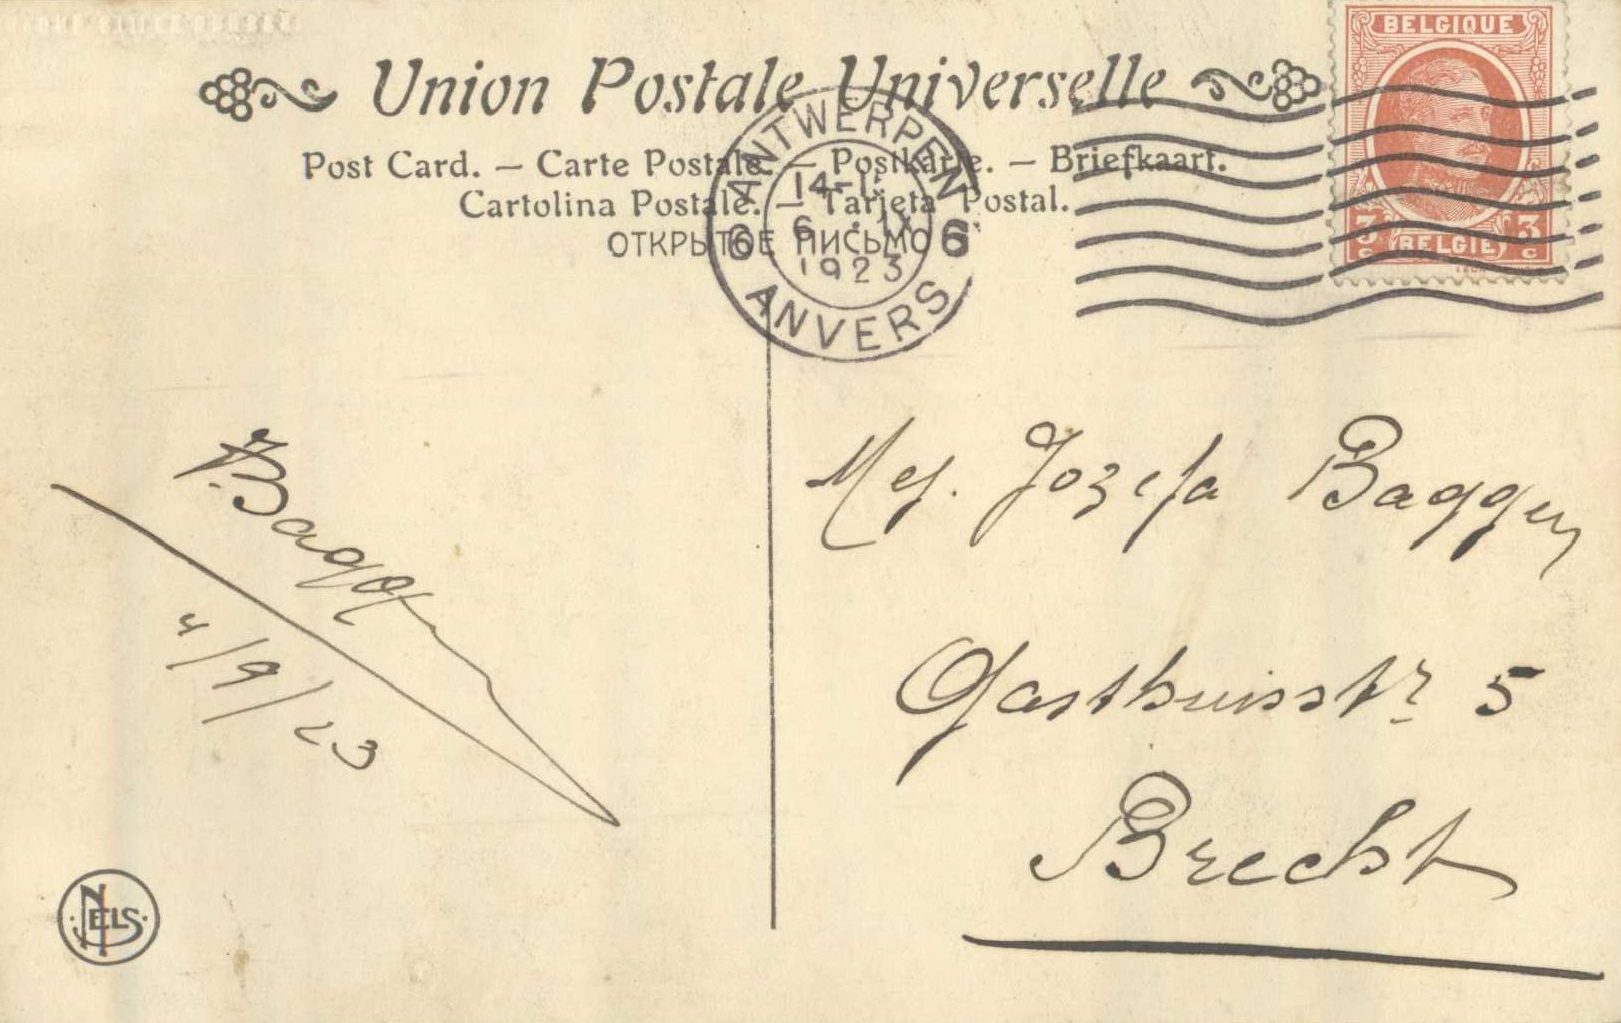 Union Postale Universelle
Post Card. — Carte Postale. — Postkarte. — Briefkaart.
Cartolina Postale. — Tarjeta Postal.
ОТКРЫТОЕ ПИСЬМО
BELGIQUE
3 c 3 c
BELGIË
ANTWERPEN
14-1
6 IX
1923
6 6
ANVERS
Mej. Jozefa Baggen
Gasthuisstr 5
Brecht
Baggen
4/9/23
NELS